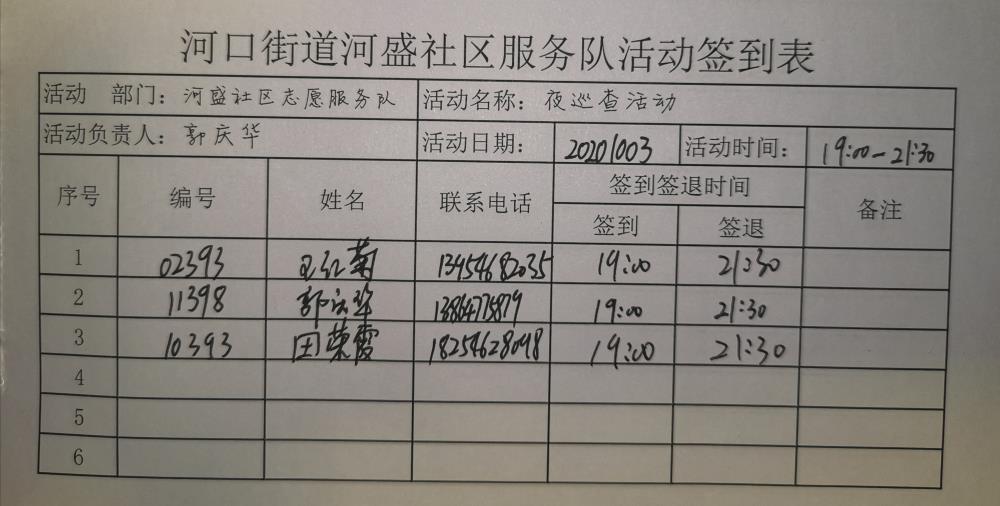 河口街道河盛社区服务队活动签到表
活动 部门：河盛社区志愿服务队 活动名称：夜巡查活动
活动负责人：郭庆华 活动日期：20201003 活动时间：19:00-21:30
序号 编号 姓名 联系电话 签到签退时间 备注
签到 签退
1 02393 王红菊 13454682035 19:00 21:30
2 11398 郭庆华 13864775879 19:00 21:30
3 10393 田荣霞 18254628098 19:00 21:30
4
5
6